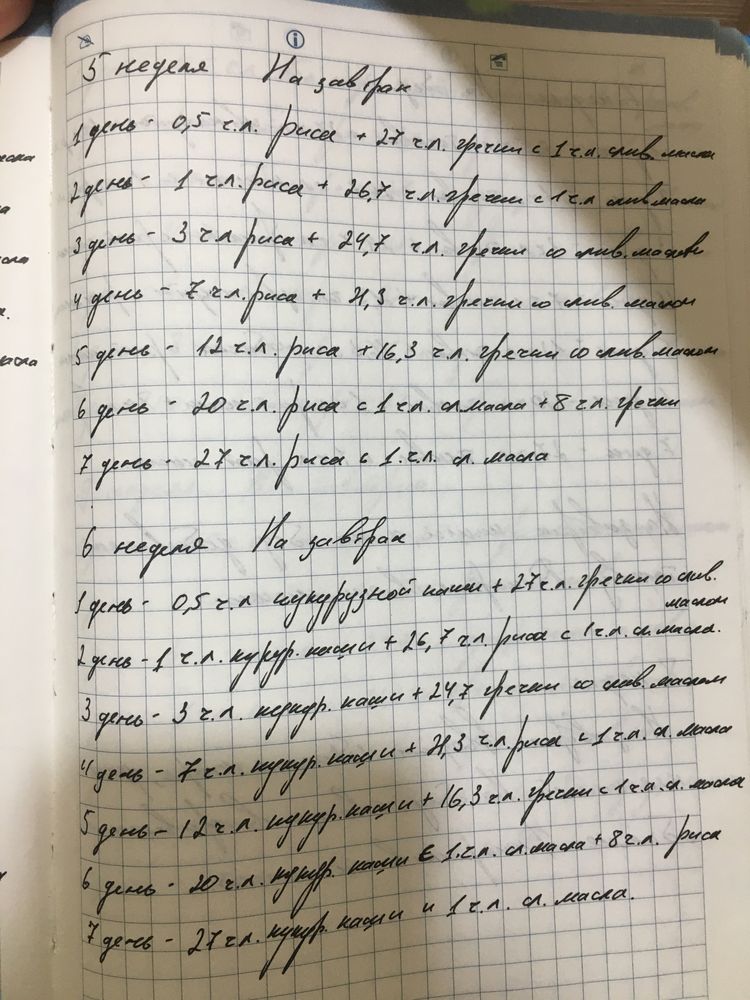 5 неделя На завтрак
1 день - 0,5 ч.л. риса + 27 ч.л. гречки с 1 ч.л. слив. масла
2 день - 1 ч.л. риса + 26,7 ч.л. гречки с 1 ч.л слив. масла
3 день - 3 ч.л риса + 24,7 ч.л. гречки со слив. маслом
4 день - 7 ч.л. риса + 21,3 ч.л. гречки со слив. маслом
5 день - 12 ч.л. риса + 16,3 ч.л. гречки со слив. маслом
6 день - 20 ч.л. риса с 1 ч.л. сл. масла + 8 ч.л. гречки
7 день - 27 ч.л. риса с 1. ч.л. сл. масла
6 неделя На завтрак
1 день - 0,5 ч.л кукурузной каши + 27 ч.л. гречки со слив.
маслом
2 день - 1 ч.л. кукур. каши + 26,7 ч.л. риса с 1 ч.л. сл. масла.
3 день - 3 ч.л. кукур. каши + 24,7 гречки со слив. маслом
4 день - 7 ч.л. кукур. каши + 21,3 ч.л. риса с 1 ч.л. сл. масла
5 день - 12 ч.л. кукур. каши + 16,3 ч.л. гречки с 1 ч.л. сл. масла
6 день - 20 ч.л. кукур. каши с 1 ч.л. сл. масла + 8 ч.л. риса
7 день - 27 ч.л. кукур. каши и 1 ч.л. сл. масла.